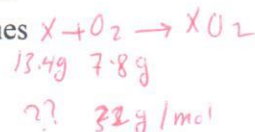 es X + O₂ → XO₂
13.4g 7.8g
?? 32g/mol